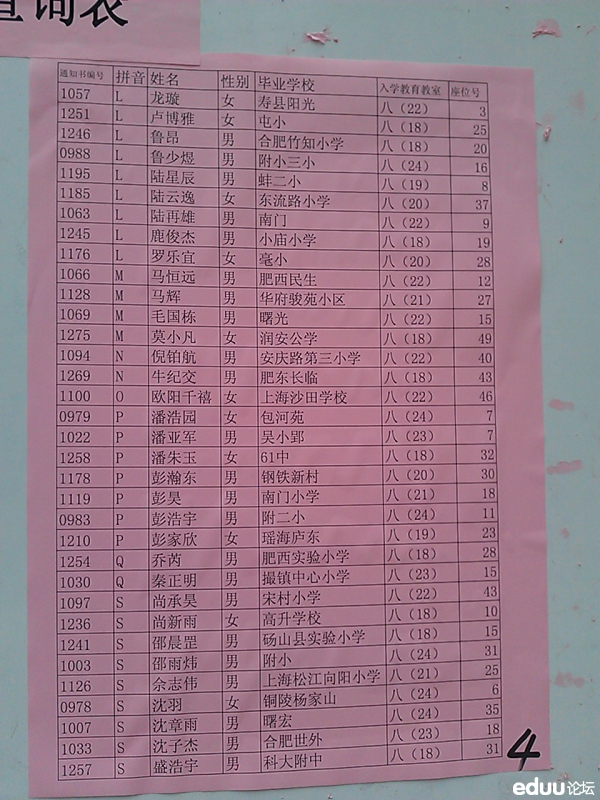 查询表
通知书编号 拼音 姓名 性别 毕业学校 入学教育教室 座位号
1057 L 龙璇 女 寿县阳光 八（22） 3
1251 L 卢博雅 女 屯小 八（18） 25
1246 L 鲁昂 男 合肥竹知小学 八（18） 20
0988 L 鲁少煜 男 附小三小 八（24） 16
1195 L 陆星辰 男 蚌二小 八（19） 8
1185 L 陆云逸 女 东流路小学 八（20） 37
1063 L 陆再雄 男 南门 八（22） 9
1245 L 鹿俊杰 男 小庙小学 八（18） 19
1176 L 罗乐宜 女 亳小 八（20） 28
1066 M 马恒远 男 肥西民生 八（22） 12
1128 M 马辉 男 华府骏苑小区 八（21） 27
1069 M 毛国栋 男 曙光 八（22） 15
1275 M 莫小凡 女 润安公学 八（18） 49
1094 N 倪铂航 男 安庆路第三小学 八（22） 40
1269 N 牛纪交 男 肥东长临 八（18） 43
1100 O 欧阳千禧 女 上海沙田学校 八（22） 46
0979 P 潘浩园 女 包河苑 八（24） 7
1022 P 潘亚军 男 吴小郢 八（23） 7
1258 P 潘朱玉 女 61中 八（18） 32
1178 P 彭瀚东 男 钢铁新村 八（20） 30
1119 P 彭昊 男 南门小学 八（21） 18
0983 P 彭浩宇 男 附二小 八（24） 11
1210 P 彭家欣 女 瑶海庐东 八（19） 23
1254 Q 乔芮 男 肥西实验小学 八（18） 28
1030 Q 秦正明 男 撮镇中心小学 八（23） 15
1097 S 尚承昊 男 宋村小学 八（22） 43
1236 S 尚新雨 女 高升学校 八（18） 10
1241 S 邵晨罡 男 砀山县实验小学 八（18） 15
1003 S 邵雨炜 男 附小 八（24） 31
1126 S 佘志伟 男 上海松江向阳小学 八（21） 25
0978 S 沈羽 女 铜陵杨家山 八（24） 6
1007 S 沈章雨 男 曙宏 八（24） 35
1033 S 沈子杰 男 合肥世外 八（23） 18
1257 S 盛浩宇 男 科大附中 八（18） 31
4
eduu论坛